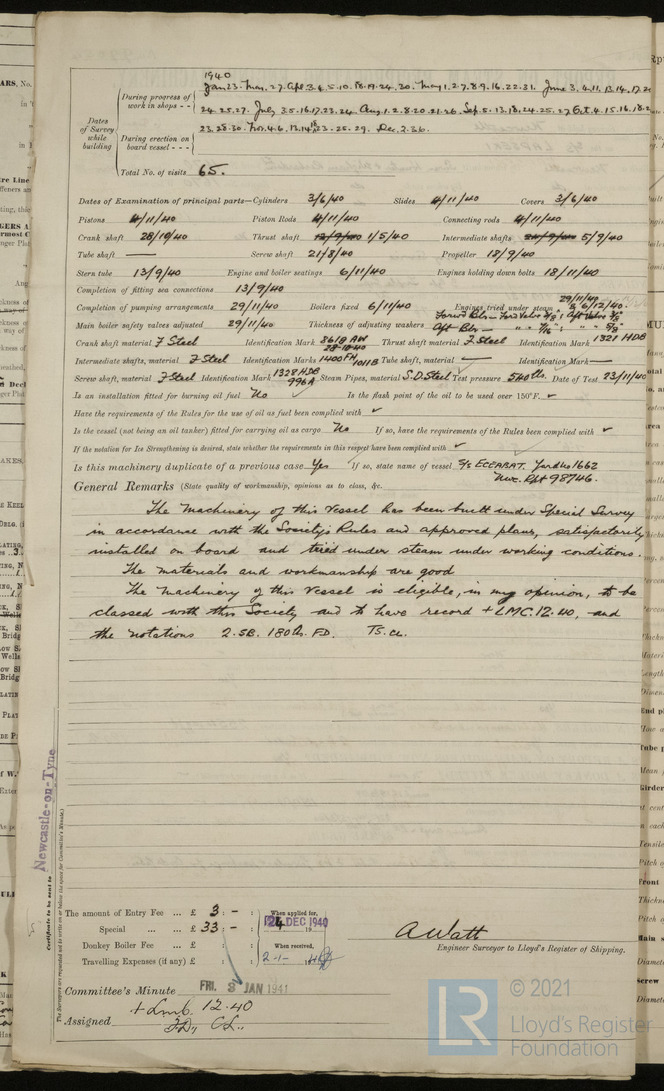 1940
Jan 23. Mar. 27. Apl 3. 4. 5. 10. 18. 19. 24. 30. May 1. 2. 7. 8. 9. 16. 22. 31. June 3. 4. 11. 13. 14. 17. 21
During progress of work in shops - -
24. 25. 27. July 3. 5. 16. 17. 23. 24. Aug. 1. 2. 8. 20. 21. 26. Sep. 5. 13. 18. 24. 25. 27. Oct. 4. 15. 16. 18. 2
Dates of Survey while building
During erection on board vessel - - -
23. 28. 30. Nov. 4. 6. 13. 14. 18. 23. 25. 29. Dec. 2. 3. 6.
Total No. of visits 65.
Dates of Examination of principal parts—Cylinders 3/6/40 Slides 4/11/40 Covers 3/6/40
Pistons 4/11/40 Piston Rods 4/11/40 Connecting rods 4/11/40
Crank shaft 28/10/40 Thrust shaft 1/5/40 Intermediate shafts 5/9/40
Tube shaft — Screw shaft 21/8/40 Propeller 18/9/40
Stern tube 13/9/40 Engine and boiler seatings 6/11/40 Engines holding down bolts 18/11/40
Completion of fitting sea connections 13/9/40
Completion of pumping arrangements 29/11/40 Boilers fixed 6/11/40 Engines tried under steam 29/11/40 & 6/12/40.
Main boiler safety valves adjusted 29/11/40 Thickness of adjusting washers Forwd Blr — Ford Valve 3/8": Aft Valve
Aft Blr — " " 7/16": " " 5/8"
Crank shaft material F Steel Identification Mark 8618 AW 28-10-40 Thrust shaft material F Steel Identification Mark 1321 HDB
Intermediate shafts, material F Steel Identification Marks 1400 FH 1011B Tube shaft, material — Identification Mark —
Screw shaft, material F Steel Identification Mark 1328 HDB 996A Steam Pipes, material S.D. Steel Test pressure 540 lbs. Date of Test 23/11/40
Is an installation fitted for burning oil fuel No Is the flash point of the oil to be used over 150°F. ✓
Have the requirements of the Rules for the use of oil as fuel been complied with ✓
Is the vessel (not being an oil tanker) fitted for carrying oil as cargo No If so, have the requirements of the Rules been complied with ✓
If the notation for Ice Strengthening is desired, state whether the requirements in this respect have been complied with ✓
Is this machinery duplicate of a previous case Yes If so, state name of vessel S/S ECEABAT. Yard No 1662
Nwc. Rpt 98746.
General Remarks (State quality of workmanship, opinions as to class, &c.
The Machinery of this Vessel has been built under Special Survey
in accordance with the Society's Rules and approved plans, satisfactorily
installed on board and tried under steam under working conditions.
The materials and workmanship are good
The Machinery of this Vessel is eligible, in my opinion, to be
classed with this Society and to have record + LMC. 12. 40, and
the notations 2. SB. 180 lbs. FD. TS. CL.
Newcastle-on-Tyne
Certificate to be sent to
(The Surveyors are requested not to write on or below the space for Committee's Minute.)
The amount of Entry Fee ... £ 3 : - :
Special ... ... £ 33 : - :
Donkey Boiler Fee ... £ : :
Travelling Expenses (if any) £ : :
When applied for,
24 DEC 1940
When received,
A Watt
Engineer Surveyor to Lloyd's Register of Shipping.
Committee's Minute FRI. 3 JAN 1941
Assigned + Lmc. 12. 40
FD, CL.
LR
© 2021
Lloyd's Register
Foundation